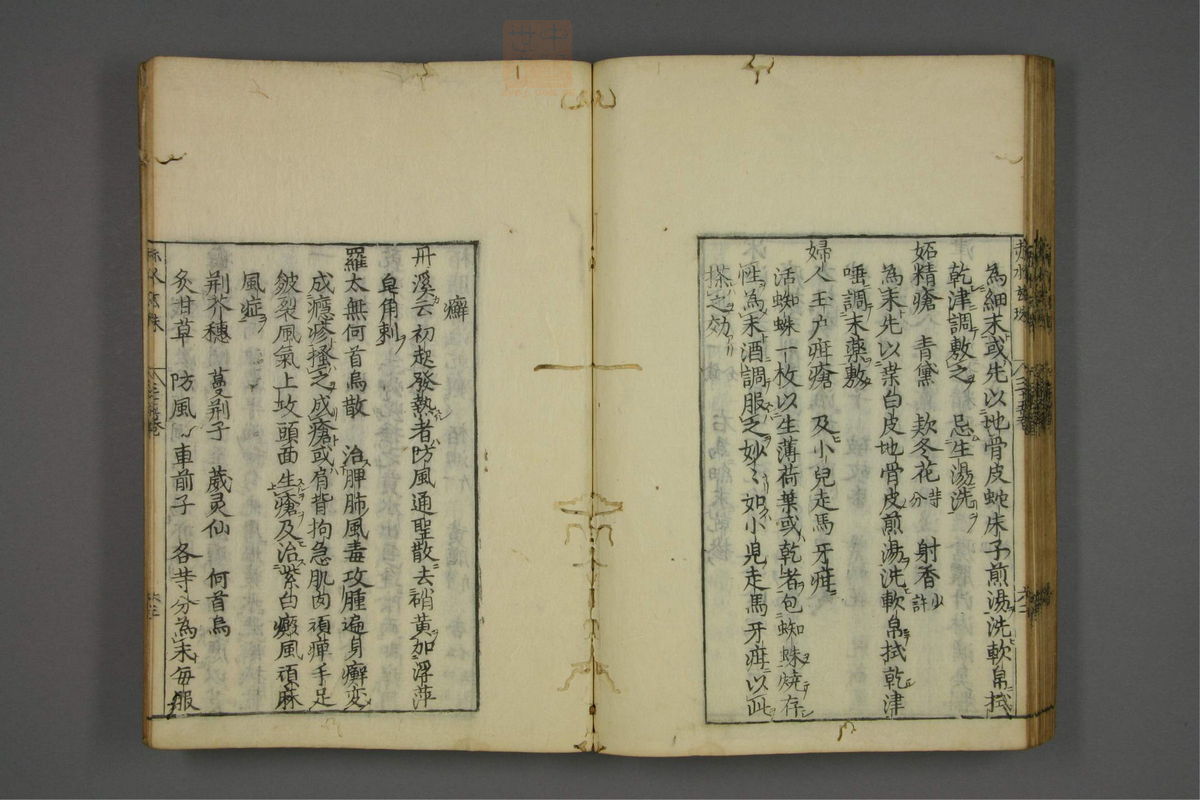 為細末或先以地骨皮蛇床子煎湯洗軟帛拭
乾津調敷之 忌生湯洗
妬精瘡 青黛 欵冬花 等分 射香 少許
為末先以葉白皮地骨皮煎湯洗軟帛拭乾津
唾調末藥敷
婦人玉户疳瘡 及小兒走馬牙疳
活蜘蛛一枚以生薄荷葉或乾者包蜘蛛燒存
性為末酒調服之妙〻如小兒走馬牙疳以此
搽之効
癬
丹溪云初起發熱者防風通聖散去硝黃加浮萍
皂角刺
羅太無何首烏散 治脾肺風毒攻腫遍身癬変
成癮疹搔之成瘡或肩背拘急肌肉頑痺手足
皴裂風氣上攻頭面生瘡及治紫白癜風頑麻
風症
荆芥穗 蔓荆子 葳灵仙 何首烏
炙甘草 防風 車前子 各等分為末每服